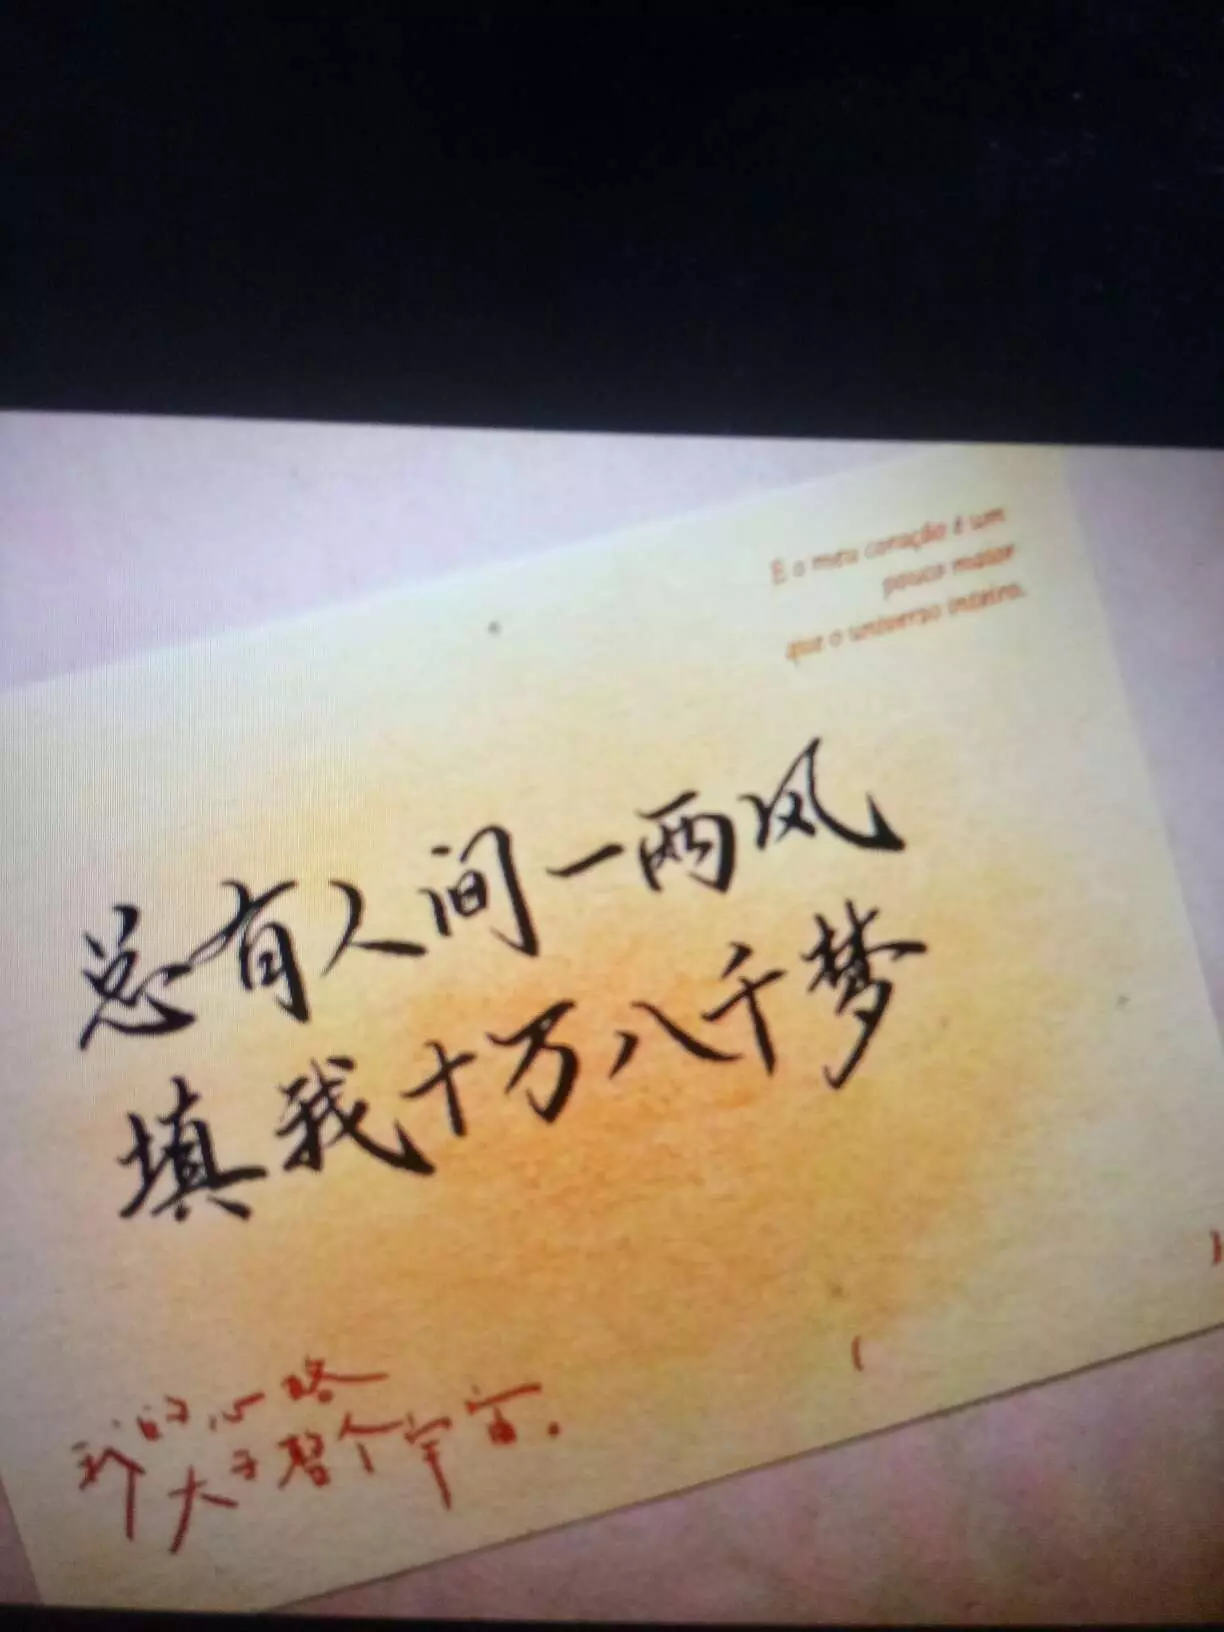 E o meu coração é um
pouco maior
que o universo inteiro.
总有人间一两风
填我十万八千梦
我的心略
大于整个宇宙。